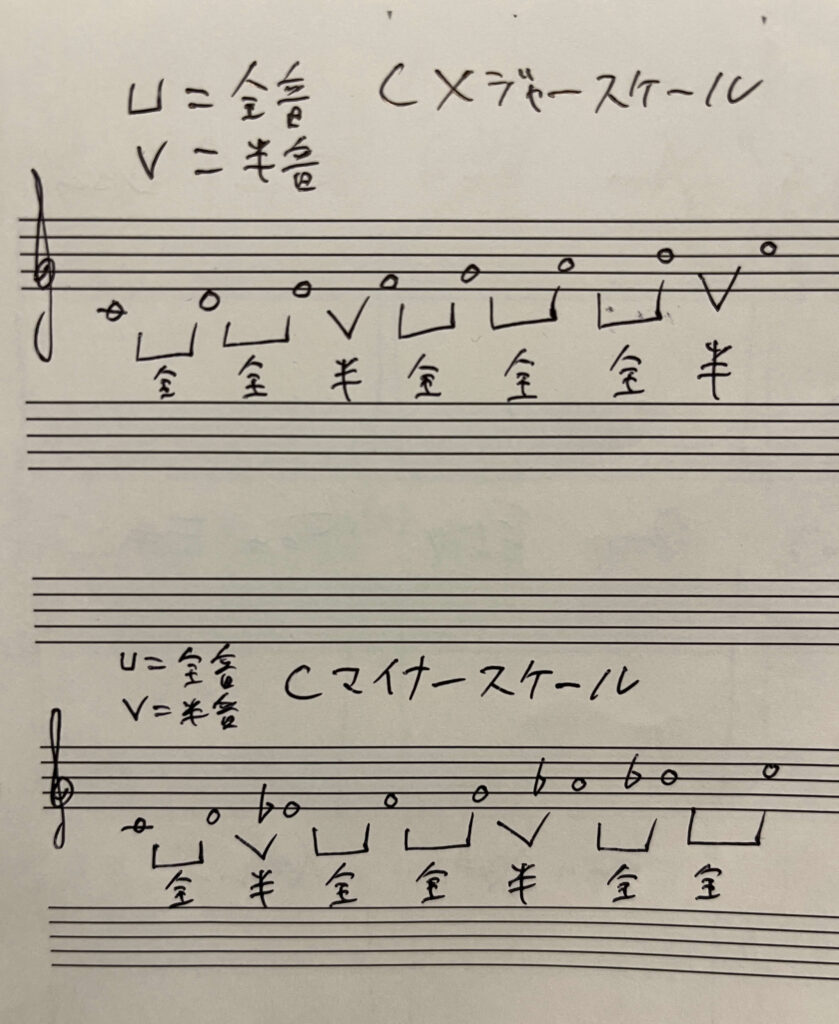 U = 全音 Cメジャースケール
V = 半音
全 全 半 全 全 全 半
U = 全音 Cマイナースケール
V = 半音
♭ ♭ ♭
全 半 全 全 半 全 全